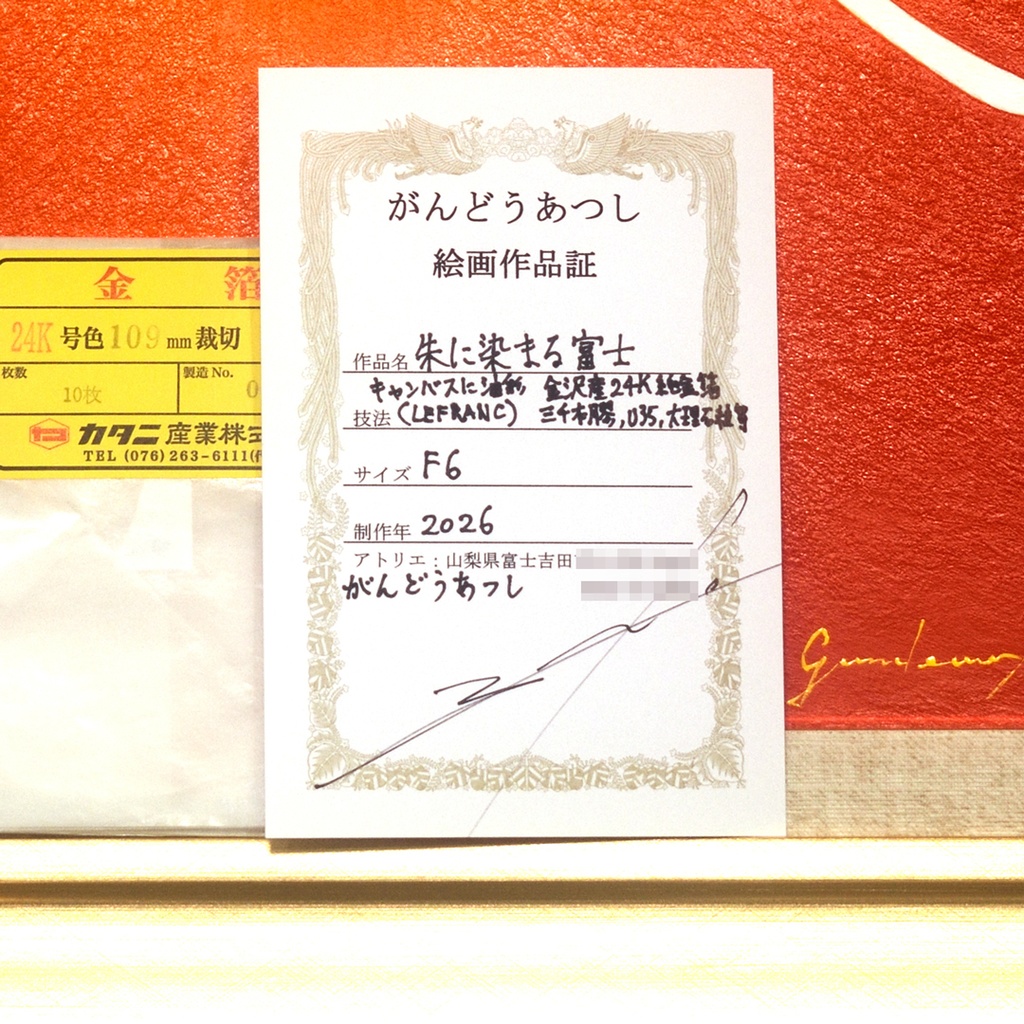 がんどうあつし
絵画作品証
作品名 朱に染まる富士
キャンバスに油彩 金沢産24K純金箔
技法 (LEFRANC) 三千本膠,035,大理石粉等
サイズ F6
制作年 2026
アトリエ：山梨県富士吉田
がんどうあつし
金箔
24K 号色 109 mm 裁切
枚数 10枚 製造 No. 0
カタニ産業株式
TEL (076) 263-6111(代